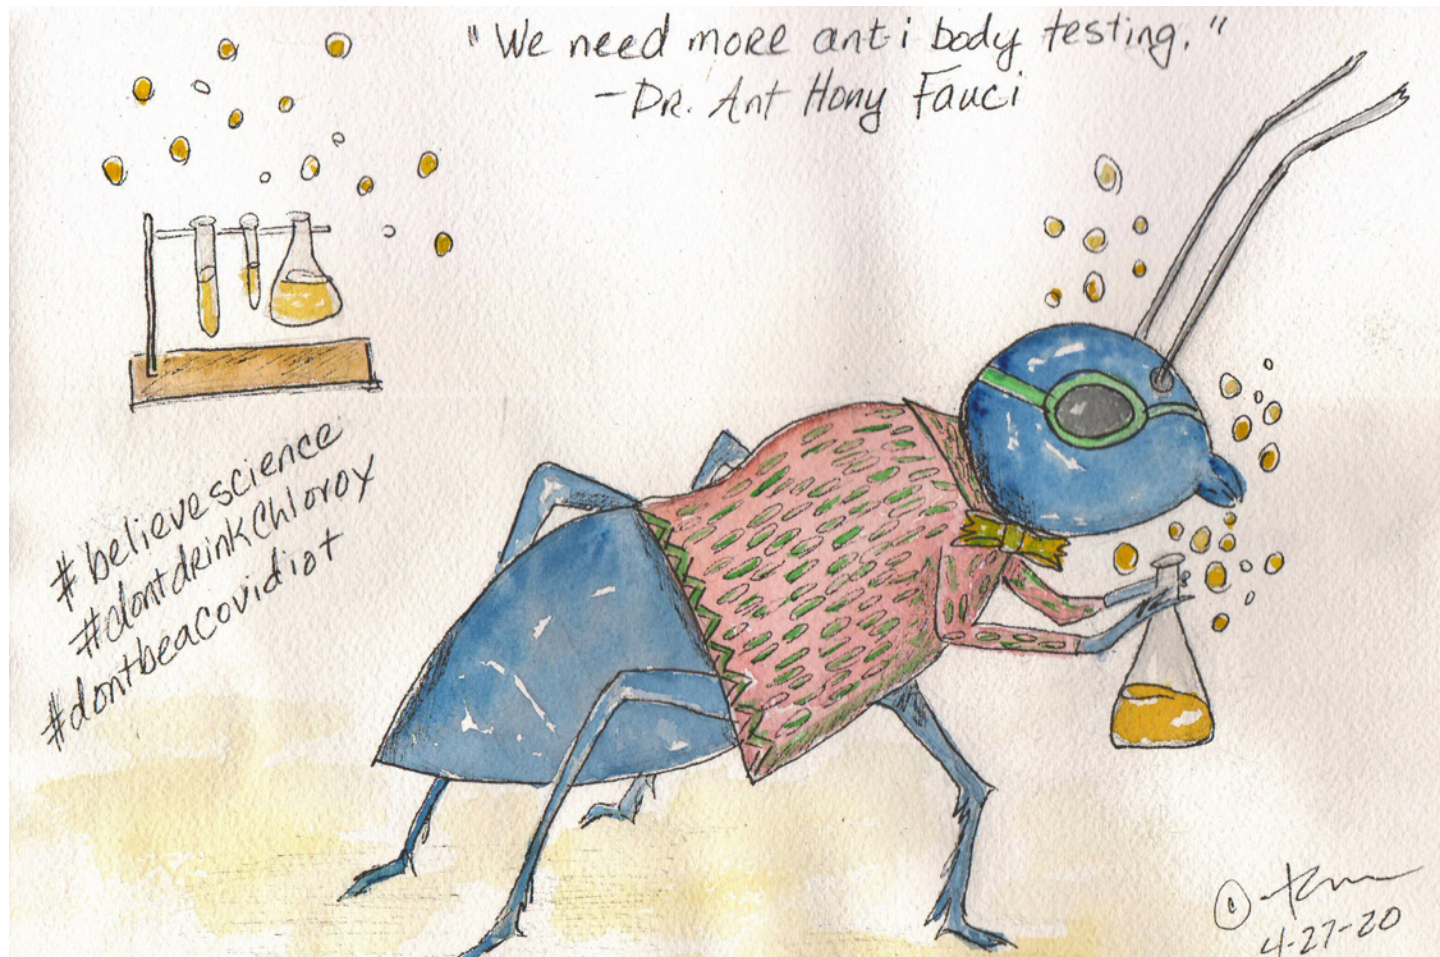 "We need more anti body testing."
-Dr. Ant Hony Fauci
#believescience
#dontdrinkChloroy
#dontbeacovidiot
©
4-27-20